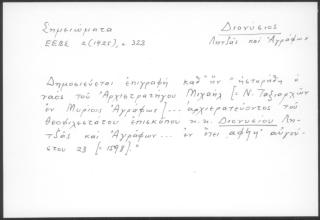 Σημειώματα
Διονύσιος
ΕΕΒΣ 2 (1925), σ. 323
Λητζᾶς καὶ Ἀγράφων
Δημοσιεύεται ἐπιγραφὴ καθ' ἥν "ἱστορήθη ὁ
ναὸς τοῦ Ἀρχιστρατήγου Μιχαὴλ [= Ν. Ταξιαρχῶν
ἐν Μυρίσι Ἀγράφων] ... ἀρχιερατεύοντος τοῦ
θεοφιλεστάτου ἐπισκόπου κ.κ. Διονυσίου Λη-
τζᾶς καὶ Ἀγράφων ... ἐν ἔτει αφϟη αὐγού-
στου 23 [= 1598]."